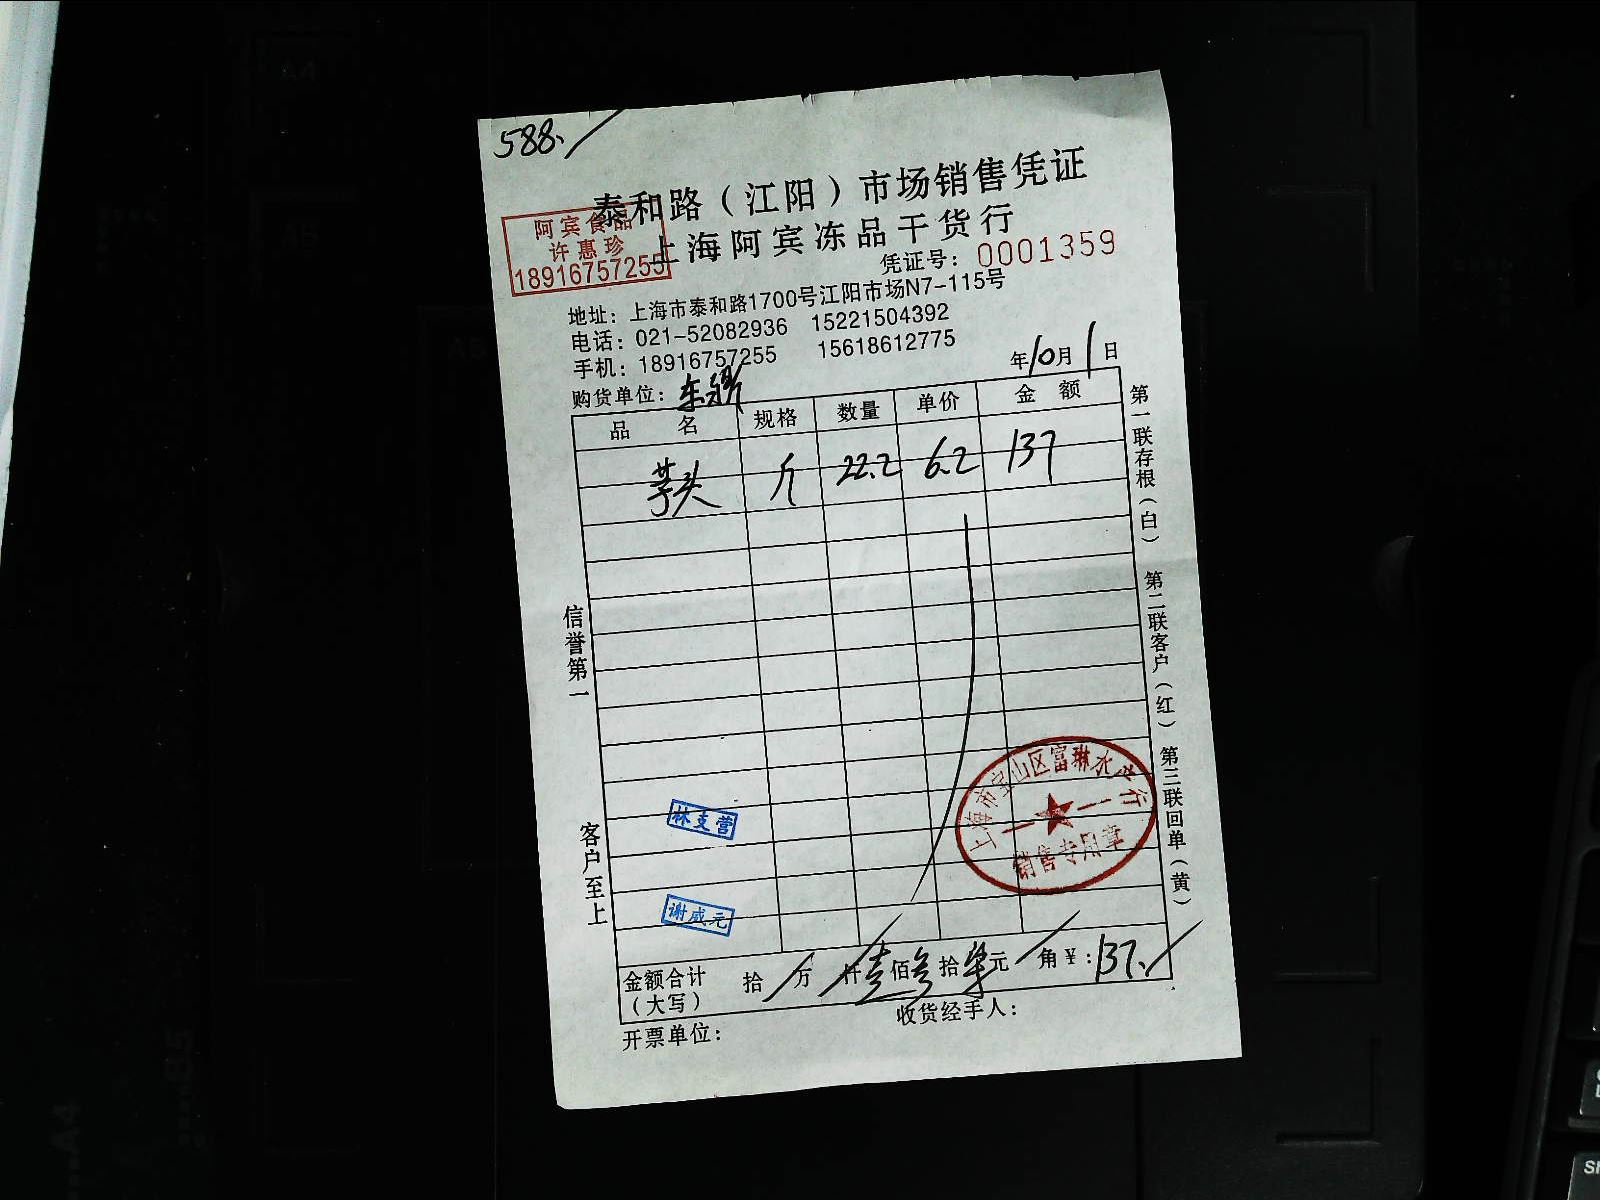 588.
泰和路（江阳）市场销售凭证
阿宾食品
许惠珍
18916757255
上海阿宾冻品干货行
凭证号：0001359
地址：上海市泰和路1700号江阳市场N7-115号
电话：021-52082936 15221504392
手机：18916757255 15618612775
年10月1日
购货单位：
品 名 规格 数量 单价 金 额
芋头 斤 22.2 6.2 137
第一联存根（白） 第二联客户（红） 第三联回单（黄）
信誉第一 客户至上
上海市宝山区富琳水产行
销售专用章
林支营
谢威元
金额合计（大写） 拾 万 仟壹佰叁拾柒元 角￥：137.
开票单位： 收货经手人：